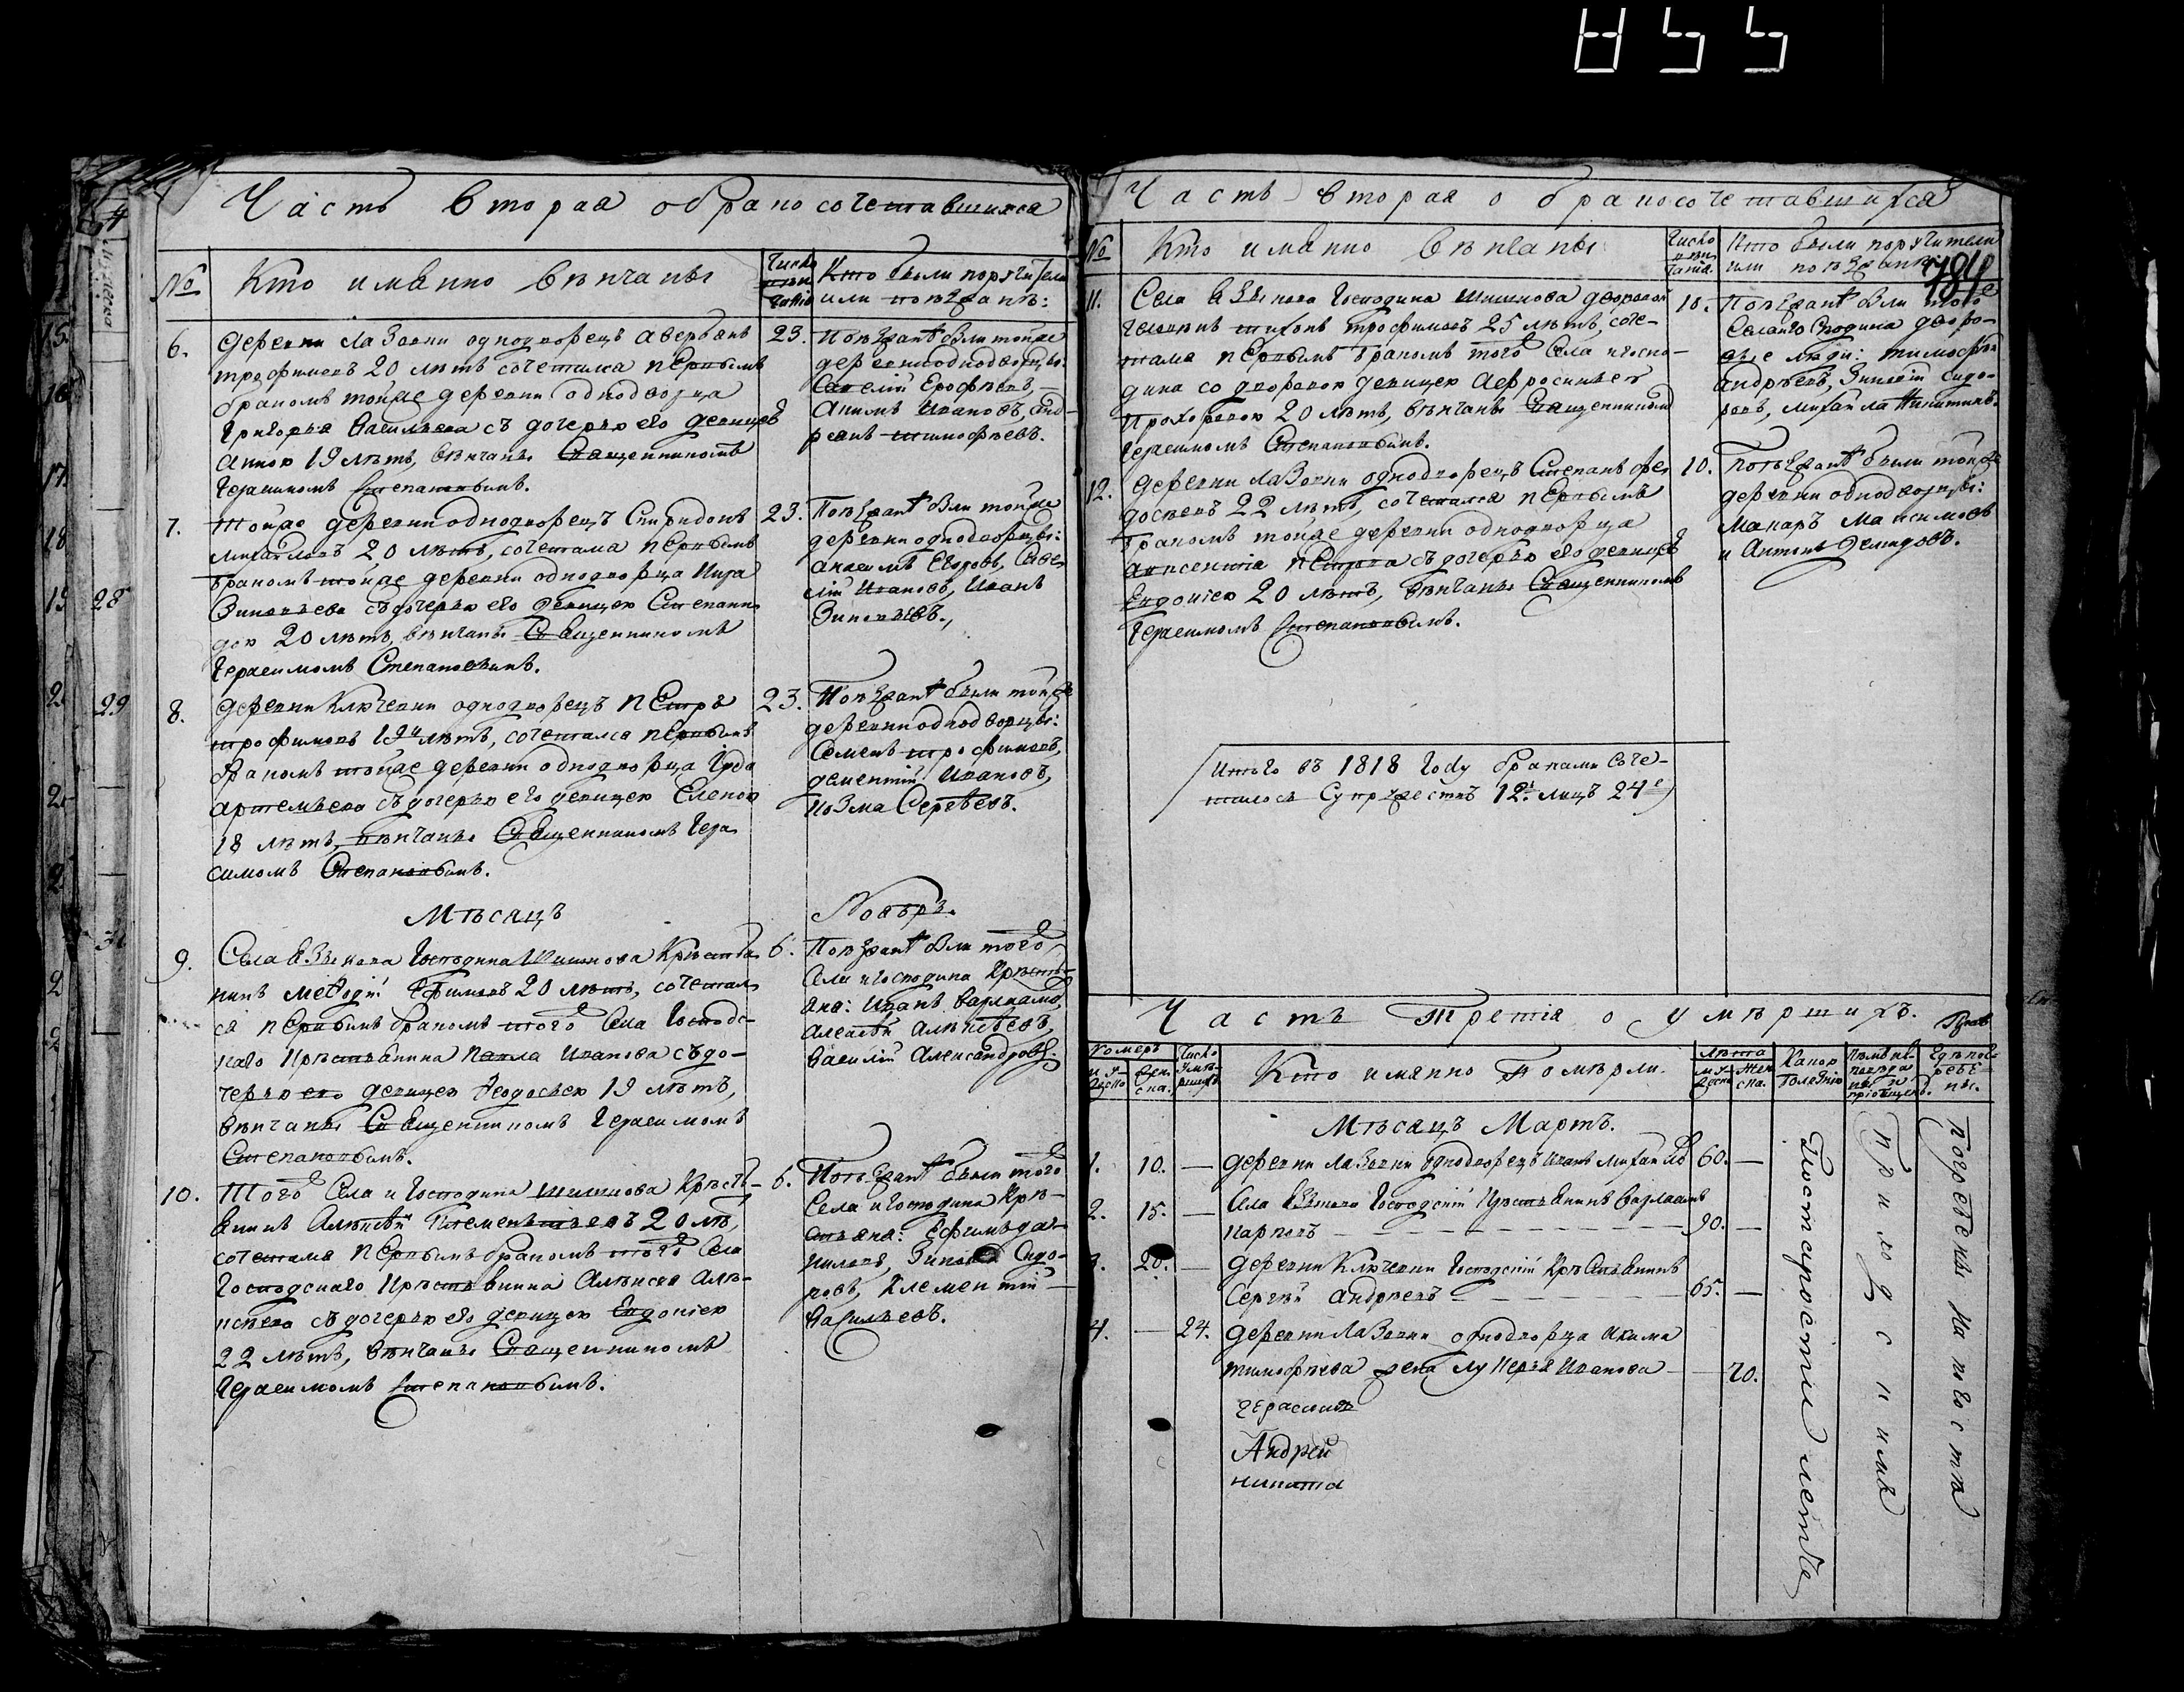 855
Часть вторая о бракосочетавшихся
№ Кто имянно венчаны Число венчания Кто были поручители или поезжане:
6. Деревни Лазовки однодворецъ Аверьянъ 23.
Трофимовъ 20 летъ сочетался первымъ
бракомъ тойже деревни однодворца
Григорья Васильева съ дочерью его девицею
Анною 19 летъ, венчаны Священникомъ
Герасимомъ Степановымъ.
Поезжане были тойже
деревни однодворцы:
Савелій Ерофеевъ,
Акимъ Ивановъ, Анд-
реянъ Тимофеевъ.
7. Тойже деревни однодворецъ Спиридонъ 23.
Михайловъ 20 летъ, сочетался первымъ
бракомъ тойже деревни однодворца
Зиновьева съ дочерью его девицею Степани-
дою 20 летъ, венчаны Священникомъ
Герасимомъ Степановымъ.
Поезжане были тойже
деревни однодворцы:
Егоровъ, Саве-
лій Ивановъ, Иванъ
Зиновьевъ.
8. Деревни Ключевки однодворецъ Петръ 23.
Трофимовъ 19 летъ, сочетался первымъ
бракомъ тойже деревни однодворца
Артемьева съ дочерью его девицею Еленою
18 летъ, венчаны Священникомъ Гера-
симомъ Степановымъ.
Поезжане были тойже
деревни однодворцы:
Семенъ Трофимовъ,
Дементій Ивановъ,
Козма Сергеевъ.
Месяцъ Ноябрь.
9. Села Языкова Господина Шишкова Крестья- 6.
нинъ Мефодій Ефимовъ 20 летъ, сочетал-
ся первымъ бракомъ того Села Господс-
каго Крестьянина Павла Иванова съ до-
черью его девицею Феодосьею 19 летъ,
венчаны Священникомъ Герасимомъ
Степановымъ.
Поезжане были того
Села и Господина Кресть-
яна: Иванъ Варламо,
Алексей Алексеевъ,
Василій Александровъ.
10. Того Села и Господина Шишкова Кресть- 6.
янинъ Алексей 20 ле,
сочетался первымъ бракомъ того Села
Господскаго Крестьянина Алексея Але-
ксеева съ дочерью его девицею Евдокіею
22 летъ, венчаны Священникомъ
Герасимомъ Степановымъ.
Поезжане были того
Села и Господина Кре-
стьяна: Ефимъ Да-
ниловъ, Сидо-
ровъ, Клементій
Васильевъ.
Часть вторая о бракосочетавшихся
№ Кто имянно венчаны Число венчания Кто были поручители или поезжане
11. Села Языкова Господина Шишкова дворовой 10.
человекъ Тихонъ Трофимовъ 25 летъ, соче-
тался первымъ бракомъ того Села и госпо-
дина со дворовою девицею Афросиньею
Прохоровою 20 летъ, венчаны Священникомъ
Герасимомъ Степановымъ.
Поезжане были того
Села и Господина дворо-
вые люди: Тимофей
Андреевъ, Сидо-
ровъ, Михайла Никитинъ.
12. Деревни Лазовки однодворецъ Степанъ Фео- 10.
досеевъ 22 летъ, сочетался первымъ
бракомъ тойже деревни однодворца
Аксентія Петрова съ дочерью его девицею
Евдокіею 20 летъ, венчаны Священникомъ
Герасимомъ Степановымъ.
Поезжане были тойже
деревни однодворцы:
Макаръ Максимовъ
и Антонъ Демидовъ.
Итого въ 1818 году браками соче-
талось Супружествъ 12. лицъ 24
Часть Третія о умершихъ.
Номеръ Число Кто имянно Померли. Лета
Месяцъ Мартъ.
1. 10. — Деревни Лазовки однодворецъ Иванъ Михайлов 60. —
2. 15. — Села Языкова Господскій Крестьянинъ Варлаамъ
Карповъ 90. —
3. 20. — Деревни Ключевки Господскій Крестьянинъ
Сергей Андреевъ 65. —
4. — 24. Деревни Лазовки однодворца Акима
Тимофеева жена Лукерья Иванова — 70.
Герасимъ
Андрей
Никита